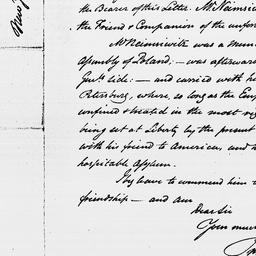 the Bearer of this Letter. Mr Neimsi
the Friend & Companion of the unfor
Mr Neimsiwitz was a mem
Assembly of Poland: — was afterward
Genl. side: — and carried with he
Petersburg, where, so long as the Em
confined & treated in the most rig
being set at Liberty by the present
with his friend to American, and n
hospitable Asylum.
I beg leave to commend him
friendship — and am
Dear Sir
Your most